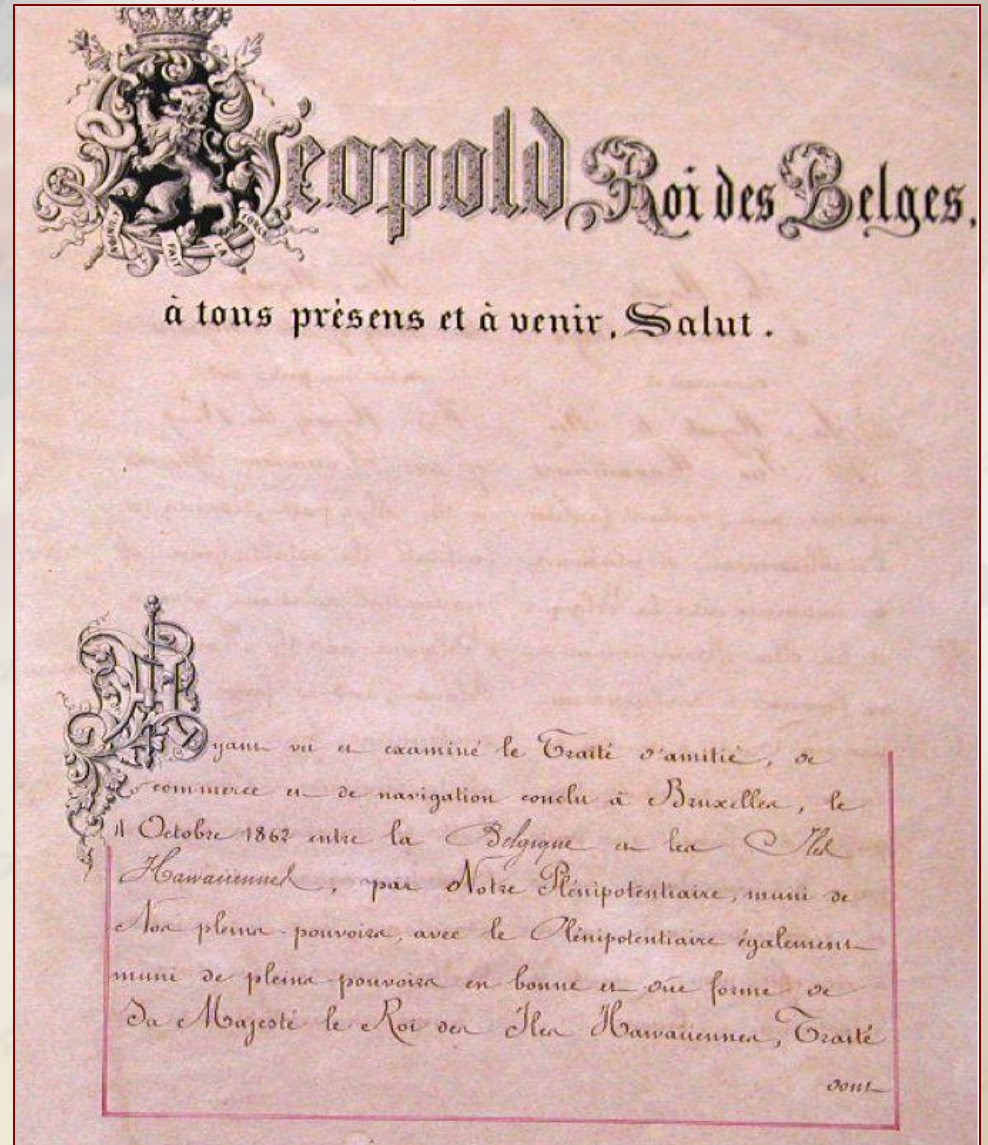 Léopold Roi des Belges,
L'UNION FAIT LA FORCE
à tous présens et à venir, Salut.
Ayant vu et examiné le Traité d'amitié, de
commerce et de navigation conclu à Bruxelles, le
4 Octobre 1862 entre la Belgique et les Iles
Hawaiiennes, par Notre Plénipotentiaire, muni de
Nos pleins-pouvoirs, avec le Plénipotentiaire également
muni de pleins-pouvoirs en bonne et due forme de
Sa Majesté le Roi des Iles Hawaiiennes, Traité
dont